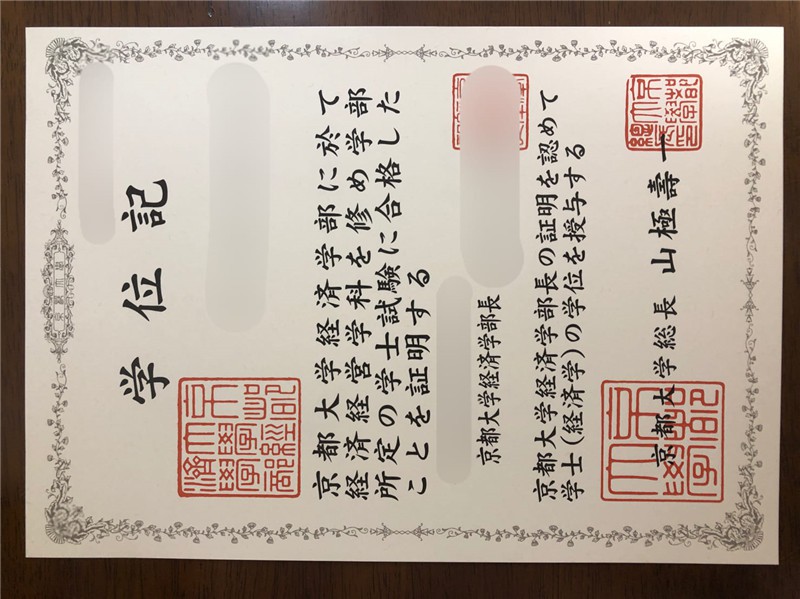 学位記
京都大学経済学部に於て
経済経営学科を修め学部
所定の学士試験に合格した
ことを証明する
京都大学経済学部長
京都大学経済学部長の証明を認めて
学士(経済学)の学位を授与する
京都大学総長 山極壽一